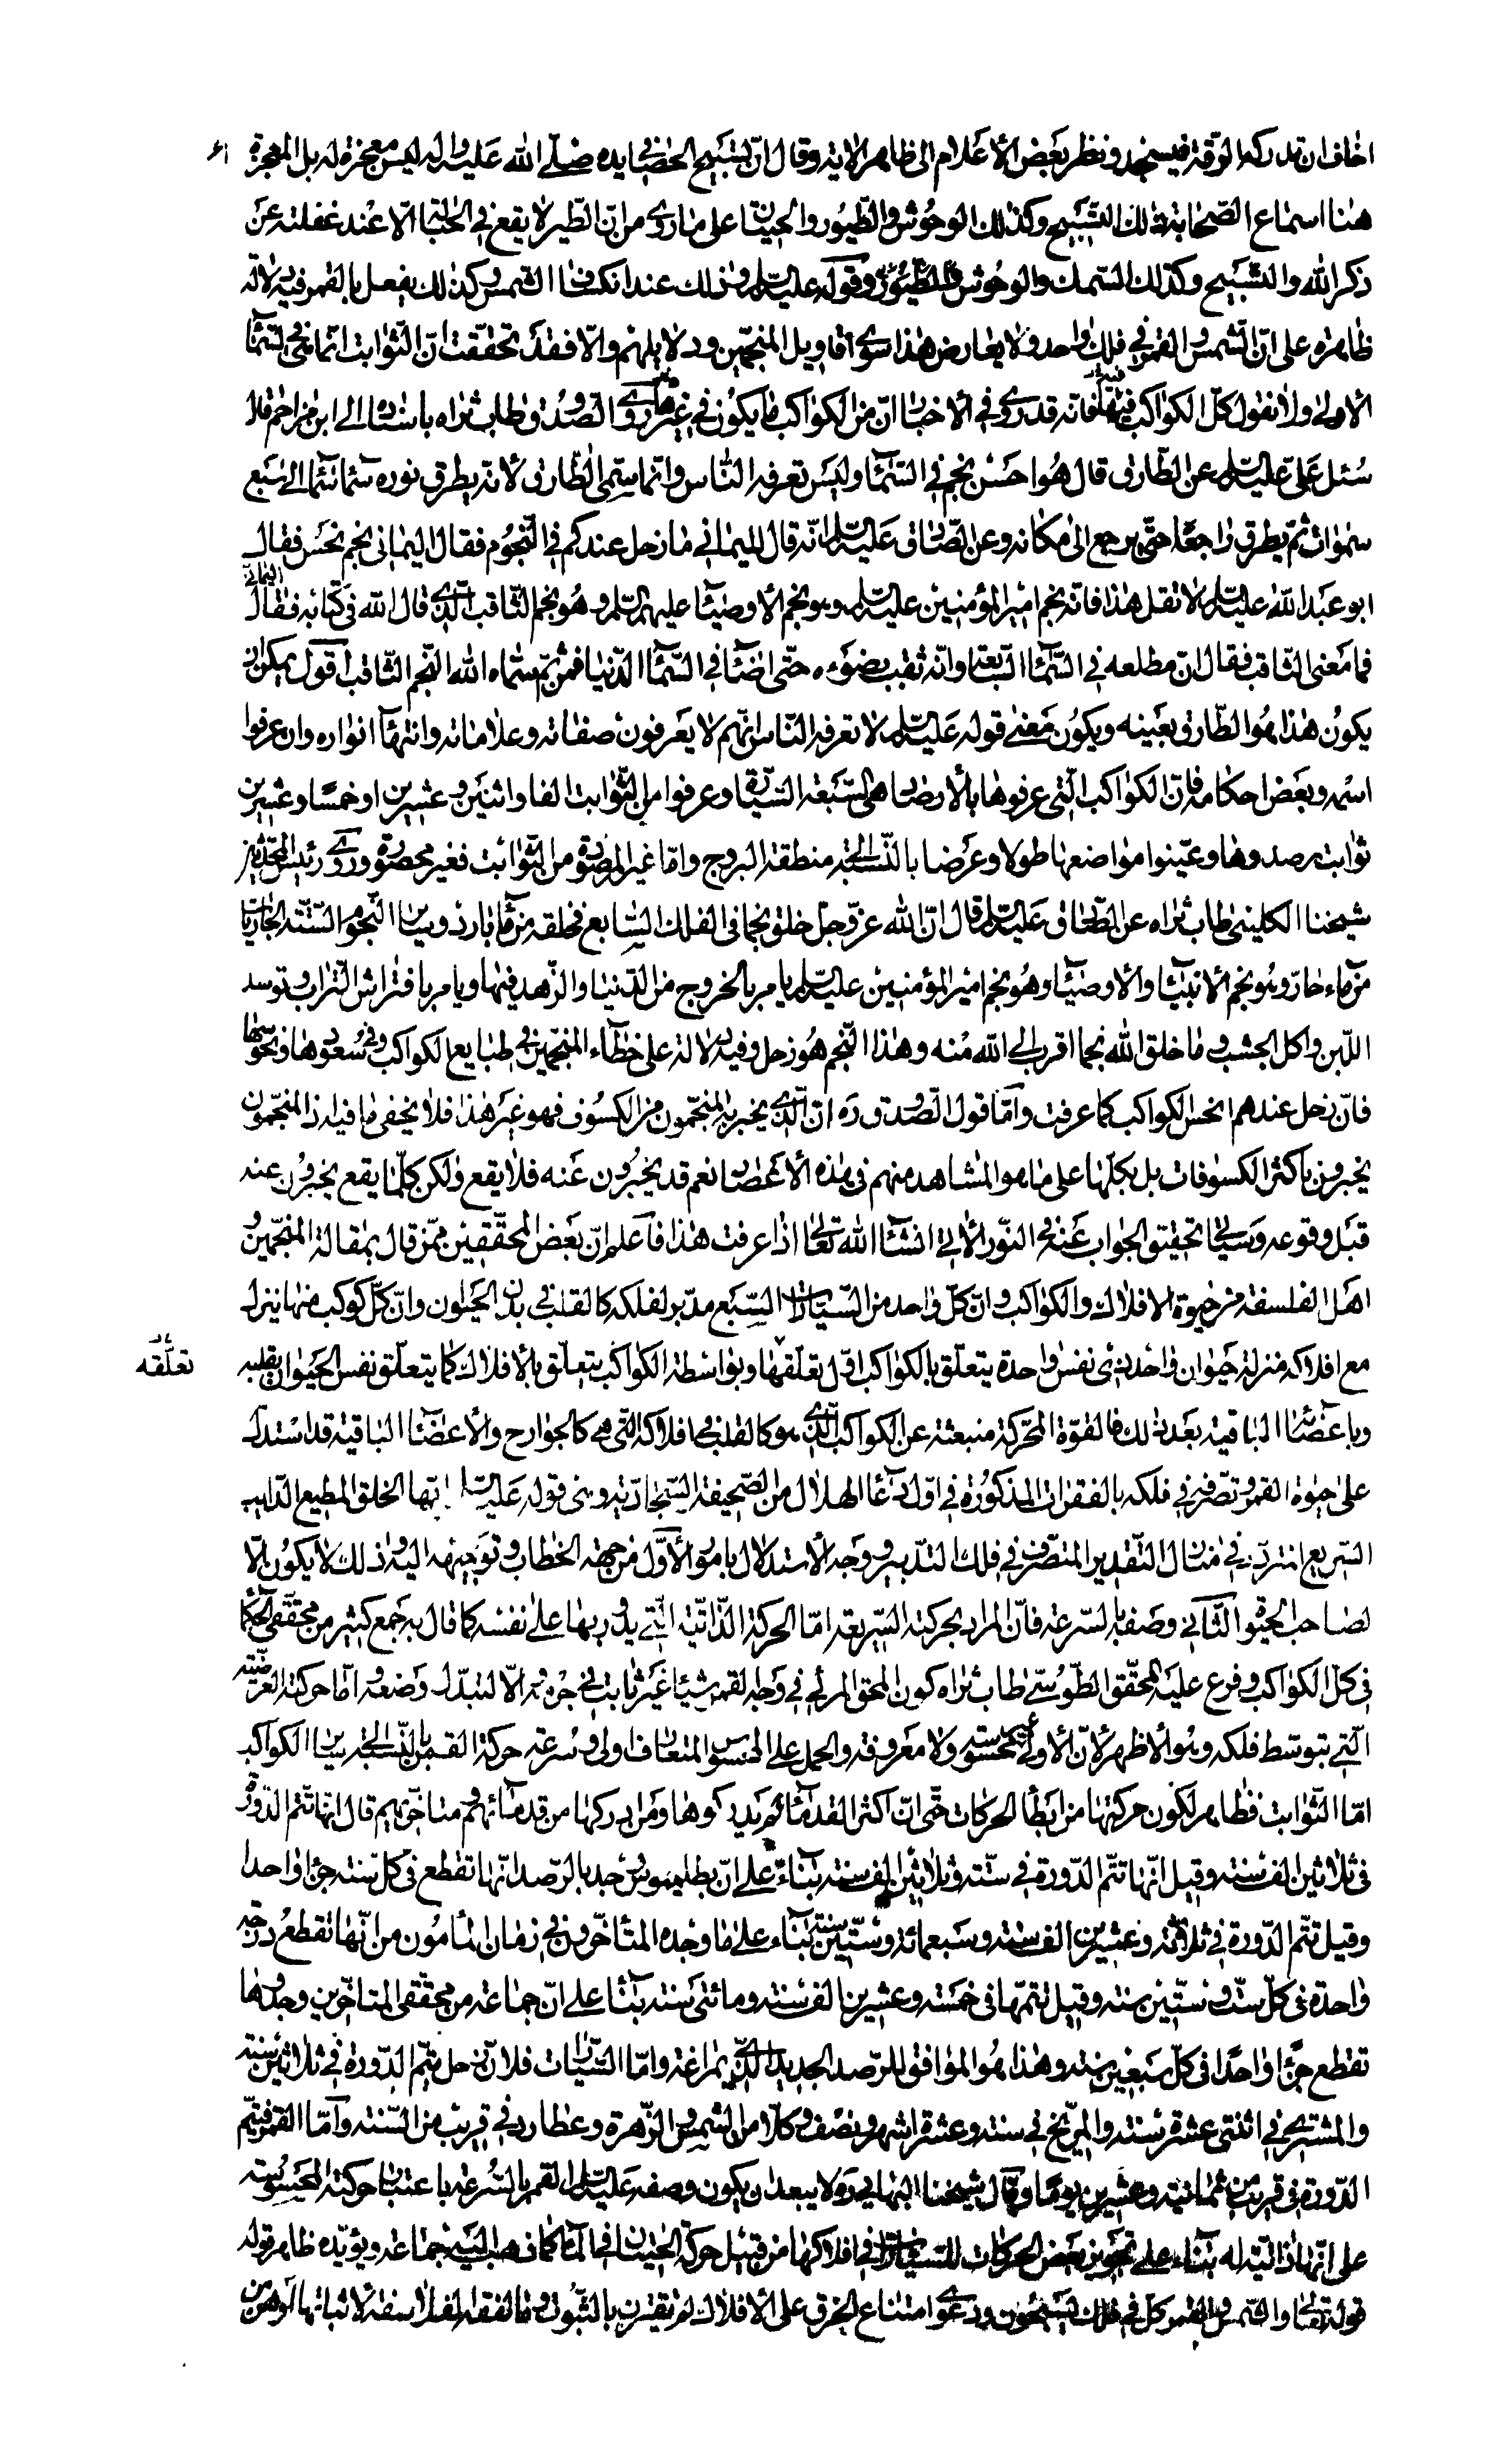 اخاف ان تدركه الرقة فيسجد ونظر بعض الأعلام الى ظاهر الاية وقال ان تسبيح الحصى في يده صلى الله عليه واله ليس معجزة له بل المعجزة
هنا اسماع الصحابة ذلك التسبيح وكذلك الوحوش والطيور والحيتان على ما روى من ان الطير لا يقع في الحبالة الا عند غفلته عن
ذكر الله والتسبيح وكذلك السمك والوحوش والطيور وقوله عليه السلم وذلك عند انكساف الشمس وكذلك يفعل بالقمر فيه دلالة
ظاهرة على ان الشمس والقمر في فلك واحد ولا يعارض هذا سوى اقاويل المنجمين ودلايلهم والا فقد تحققت ان الثوابت انما هى في السماء
الاولى ولا نقول كل الكواكب فيها فانه قد روى في الاخبار ان من الكواكب ما يكون في غيرها روى الصدوق طاب ثراه باسناده الى ابن مزاحم قال
سئل على عليه السلم عن الطارق قال هو احسن نجم في السماء وليس تعرفه الناس وانما سمى الطارق لانه يطرق نوره سماء سماء الى سبع
سموات ثم يطرق راجعا حتى يرجع الى مكانه وعن الصادق عليه السلم انه قال لليماني ما زحل عندكم في النجوم فقال اليماني نجم نحس فقال
ابو عبد الله عليه السلم لا تقل هذا فانه نجم امير المؤمنين عليه السلم وهو نجم الأوصياء عليهم السلم وهو نجم الثاقب الذى قال الله في كتابه فقال اليماني
فما معنى الثاقب فقال ان مطلعه في السماء السابعة وانه ثقب بضوءه حتى اضاء في السماء الدنيا فمن ثم سماه الله النجم الثاقب اقول يمكن ان
يكون هذا هو الطارق بعينه ويكون معنى قوله عليه السلم لا تعرفه الناس انهم لا يعرفون صفاته وعلاماته وانتهاء انواره وان عرفوا
اسمه وبعض احكامه فان الكواكب التى عرفوها بالأرصاد هى السبعة السيارة وعرفوا من الثوابت الفا واثنين وعشرين او خمسا وعشرين
ثوابت رصدوها وعينوا مواضعها طولا وعرضا بالنسبة الى منطقة البروج واما غير المرصودة من الثوابت فغير محصورة وروى رئيس المحدثين
شيخنا الكليني طاب ثراه عن الصادق عليه السلم قال ان الله عز وجل خلق نجما في الفلك السابع فخلقه من ماء بارد وساير النجوم الستة الجاريات
من ماء حار وهو نجم الأنبياء والأوصياء وهو نجم امير المؤمنين عليه السلم يامر بالخروج من الدنيا والزهد فيها ويامر بافتراش التراب وتوسد
اللبن واكل الجشب وما خلق الله نجما اقرب الى الله منه وهذا النجم هو زحل وفيه دلالة على خطاء المنجمين في طبايع الكواكب وفي سعودها ونحوسها
فان زحل عندهم انحس الكواكب كما عرفت واما قول الصدوق ره ان الذى يخبر به المنجمون من الكسوف فهو غير هذا فلا يخفى ما فيه اذ المنجمون
يخبرون باكثر الكسوفات بل بكلها على ما هو المشاهد منهم في هذه الأعصار نعم قد يخبرون عنه فلا يقع ولكن كلما يقع يخبرون عنه
قبل وقوعه وسياتي تحقيق الجواب عنه في النور الاتى انشاء الله تعالى اذا عرفت هذا فاعلم ان بعض المحققين ممن قال بمقالة المنجمين و
اهل الفلسفة من حيوة الافلاك والكواكب وان كل واحد من السيارات السبع مدبر لفلكه كالقلب في بدن الحيوان وان كل كوكب منها ينزل
مع افلاكه منزلة حيوان واحد ذى نفس واحدة يتعلق بالكواكب اول تعلقها وبواسطة الكواكب يتعلق بالأفلاك كما يتعلق نفس الحيوان بقلبه
تعلقه
وباعضائه الباقية بعد ذلك فالقوة المحركة منبعثة عن الكواكب الذى هو كالقلب في افلاكه التى هى كالجوارح والأعضاء الباقية قد استدل
على حيوة القمر وتصرفه في فلكه بالفقرات المذكورة في اول دعاء الهلال من الصحيفة السجادية وهى قوله عليه السلم ايها الخلق المطيع الدايب
السريع المتردد في منازل التقدير المتصرف في فلك التدبير ووجه الأستدلال بامور الأول من جهة الخطاب وتوجيهه اليه وذلك لا يكون الا
لصاحب الحيوة الثاني وصفه بالسرعة فان المراد بحركته السريعة اما الحركة الذاتية التى يدور بها على نفسه كما قال به جمع كثير من محققى الحكماء
في كل الكواكب وفرع عليه المحقق الطوسى طاب ثراه كون المحو المرئى في وجه القمر شيئا غير ثابت في جرمه والا لتبدل وضعه واما حركته العرضية
التى بتوسط فلكه وهو الأظهر لأن الأولى غير محسوسة ولا معروفة والحمل على المحسوس المتعارف اولى وسرعة حركة القمر بالنسبة الى ساير الكواكب
اما الثوابت فظاهر لكون حركتها من ابطأ الحركات حتى ان اكثر القدماء لم يدركوها ومن ادركها من قدمائهم ومتاخريهم قال انها تتم الدورة
في ثلاثين الف سنة وقيل انها تتم الدورة في ستة وثلاثين الف سنة بناء على ان بطلميوس وجد بالرصد انها تقطع في كل سنة جزءا واحدا
وقيل تتم الدورة في ثلاثة وعشرين الف سنة وسبعمائة وستين سنة بناء على ما وجده المتأخرون في زمان المأمون من انها تقطع درجة
واحدة في كل ست وستين سنة وقيل تتمها في خمسة وعشرين الف سنة ومائتى سنة بناء على ان جماعة من محققى المتاخرين وجدوها
تقطع جزءا واحدا في كل سبعين سنة وهذا هو الموافق للرصد الجديد الذى بمراغة واما السيارات فلان زحل يتم الدورة في ثلاثين سنة
والمشترى في اثنتى عشرة سنة والمريخ في سنة وعشرة اشهر ونصف وكلا من الشمس والزهرة وعطارد في قريب من السنة واما القمر فيتم
الدورة في قريب من ثمانية وعشرين يوما وقال شيخنا البهائي ره ولا يبعد ان يكون وصفه عليه السلم القمر بالسرعة باعتبار حركته المحسوسة
على انها ذاتية له بناء على تجويز بعض الحركات للسيارات في افلاكها من قبيل حركة الحيتان في الماء كما ذهب اليه جماعة ويؤيده ظاهر قوله
قوله تعالى والشمس والقمر كل في فلك يسبحون ودعوى امتناع الخرق على الأفلاك لم تقترن بالثبوت وما لفقه الفلاسفة لاثباتها اوهن من